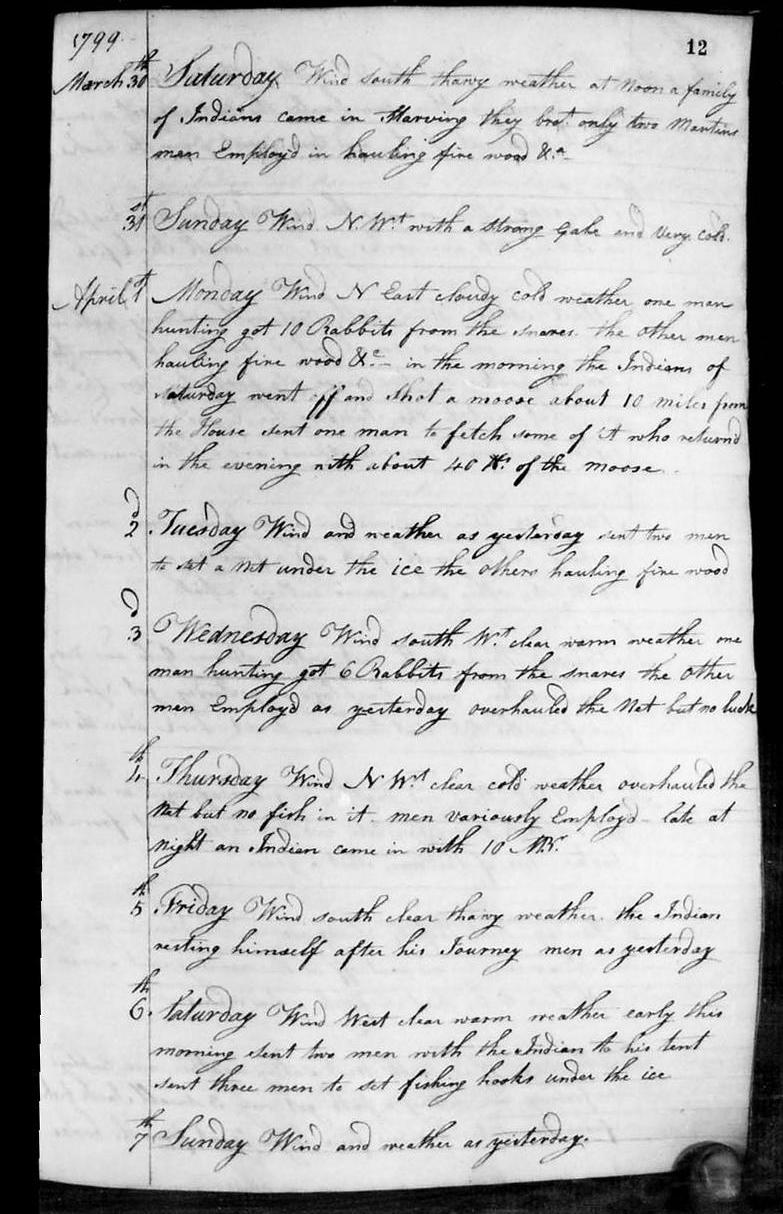 1799
12
March 30th Saturday Wind South thawy weather at Noon a family
of Indians came in Starving they brot. only two Martins
men Employ'd in hauling fire wood &.a
31st Sunday Wind N.Wt with a Strong Gale and Very Cold.
April 1st Monday Wind N East cloudy cold weather one man
hunting got 10 Rabbits from the snares. the other men
hauling fire wood &c - in the morning the Indians of
Saturday went off and Shot a moose about 10 miles from
the House sent one man to fetch some of it who return'd
in the evening with about 40 lbs. of the moose.
2d Tuesday Wind and weather as yesterday sent two men
to set a Net under the ice the others hauling fire wood
3d Wednesday Wind south Wt. clear warm weather one
man hunting got 6 Rabbits from the snares the other
men Employd as yesterday overhauled the Net but no luck
4th Thursday Wind N Wt clear cold weather overhauled the
Net but no fish in it. men variously Employd - late at
night an Indian came in with 10 MBr.
5th Friday Wind south clear thawy weather. the Indian
resting himself after his Journey men as yesterday
6th. Saturday Wind West clear warm weather early this
morning sent two men with the Indian to his tent
sent three men to set fishing hooks under the ice
7th Sunday Wind and weather as yesterday.